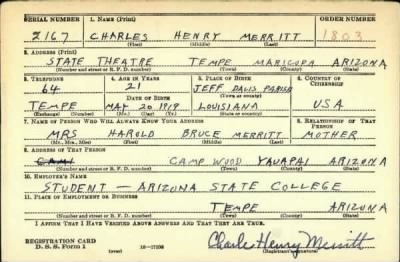 SERIAL NUMBER 1. NAME (Print) ORDER NUMBER
2167 CHARLES HENRY MERRITT 1803
(First) (Middle) (Last)
2. ADDRESS (Print)
STATE THEATRE TEMPE MARICOPA ARIZONA
(Number and street or R. F. D. number) (Town) (County) (State)
3. TELEPHONE 4. AGE IN YEARS 5. PLACE OF BIRTH 6. COUNTRY OF CITIZENSHIP
64 21 JEFF DAVIS PARISH
DATE OF BIRTH (Town or county)
TEMPE MAY 20 1919 LOUISIANA USA
(Exchange) (Number) (Mo.) (Day) (Yr.) (State or country)
7. NAME OF PERSON WHO WILL ALWAYS KNOW YOUR ADDRESS 8. RELATIONSHIP OF THAT PERSON
MRS HAROLD BRUCE MERRITT MOTHER
(Mr., Mrs., Miss) (First) (Middle) (Last)
9. ADDRESS OF THAT PERSON
CAMP WOOD YAVAPAI ARIZONA
(Number and street or R. F. D. number) (Town) (County) (State)
10. EMPLOYER'S NAME
STUDENT — ARIZONA STATE COLLEGE
11. PLACE OF EMPLOYMENT OR BUSINESS
TEMPE ARIZONA
(Number and street or R. F. D. number) (Town) (County) (State)
I AFFIRM THAT I HAVE VERIFIED ABOVE ANSWERS AND THAT THEY ARE TRUE.
REGISTRATION CARD
D. S. S. Form 1 (over) 16—17105 Charles Henry Merritt